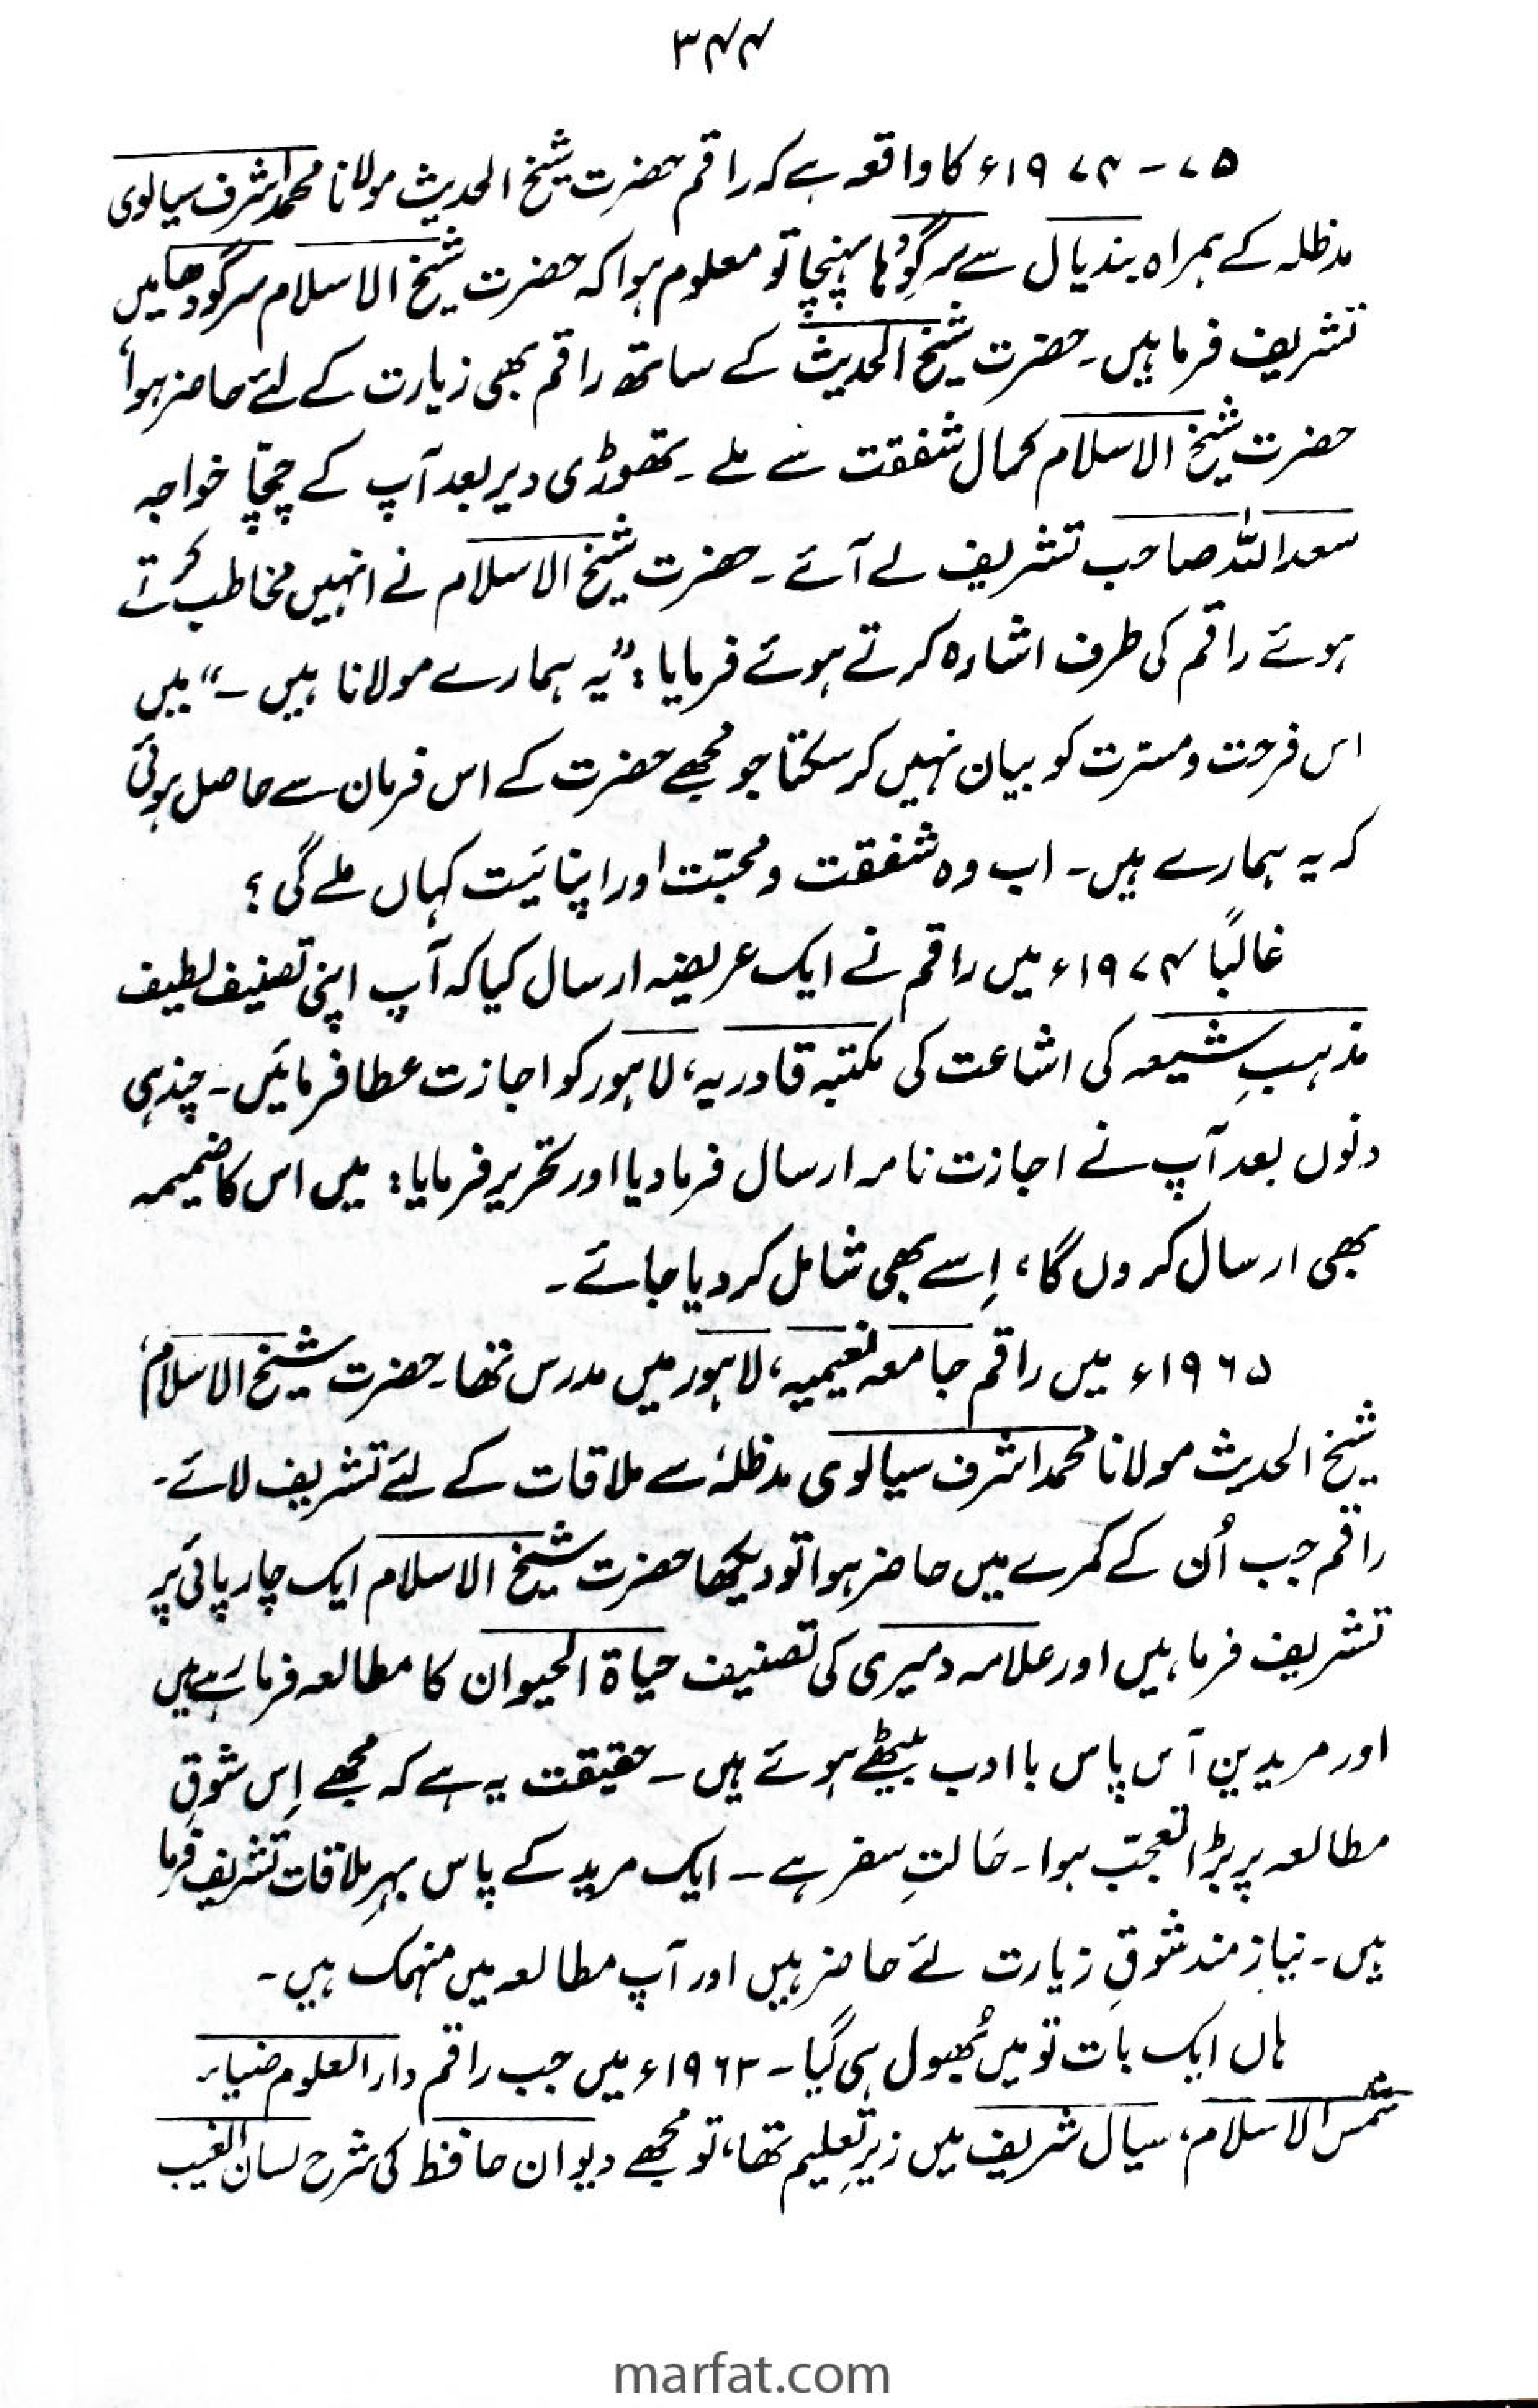 ۳۴۴
۷۵ - ۱۹۷۴ء کا واقعہ ہے کہ راقم حضرت شیخ الحدیث مولانا محمد اشرف سیالوی
مدظلہ کے ہمراہ بندیال سے سرگودہا پہنچا تو معلوم ہوا کہ حضرت شیخ الاسلام سرگودھا میں
تشریف فرما ہیں۔ حضرت شیخ الحدیث کے ساتھ راقم بھی زیارت کے لئے حاضر ہوا،
حضرت شیخ الاسلام کمال شفقت سے ملے۔ تھوڑی دیر بعد آپ کے چچا خواجہ
سعد اللہ صاحب تشریف لے آئے۔ حضرت شیخ الاسلام نے انہیں مخاطب کرتے
ہوئے راقم کی طرف اشارہ کرتے ہوئے فرمایا: "یہ ہمارے مولانا ہیں۔" میں
اس فرحت و مسرّت کو بیان نہیں کر سکتا جو مجھے حضرت کے اس فرمان سے حاصل ہوئی
کہ یہ ہمارے ہیں۔ اب وہ شفقت و محبّت اور اپنائیَت کہاں ملے گی؟
غالبًا ۱۹۷۴ء میں راقم نے ایک عریضہ ارسال کیا کہ آپ اپنی تصنیف لطیف
مذہبِ شیعہ کی اشاعت کی مکتبہ قادریہ، لاہور کو اجازت عطا فرمائیں۔ چند ہی
دنوں بعد آپ نے اجازت نامہ ارسال فرما دیا اور تحریر فرمایا: میں اس کا ضمیمہ
بھی ارسال کروں گا، اِسے بھی شامل کر دیا جائے۔
۱۹۶۵ء میں راقم جامعہ نعیمیہ، لاہور میں مدرس تھا۔ حضرت شیخ الاسلام،
شیخ الحدیث مولانا محمد اشرف سیالوی مدظلہٗ سے ملاقات کے لئے تشریف لائے۔
راقم جب اُن کے کمرے میں حاضر ہوا تو دیکھا حضرت شیخ الاسلام ایک چارپائی پر
تشریف فرما ہیں اور علامہ دمیری کی تصنیف حیاۃ الحیوان کا مطالعہ فرما رہے ہیں
اور مریدین آس پاس با ادب بیٹھے ہوئے ہیں۔ حقیقت یہ ہے کہ مجھے اِس شوقِ
مطالعہ پر بڑا تعجّب ہوا۔ حَالتِ سفر ہے۔ ایک مرید کے پاس بہرِ ملاقات تشریف فرما
ہیں۔ نیاز مند شوقِ زیارت لئے حاضر ہیں اور آپ مطالعہ میں منہمک ہیں۔
ہاں ایک بات تو میں بُھول ہی گیا۔ ۱۹۶۳ء میں جب راقم دار العلوم ضیاء
شمس الاسلام، سیال شریف میں زیرِ تعلیم تھا، تو مجھے دیوان حافظ کی شرح لسان الغیب
marfat.com